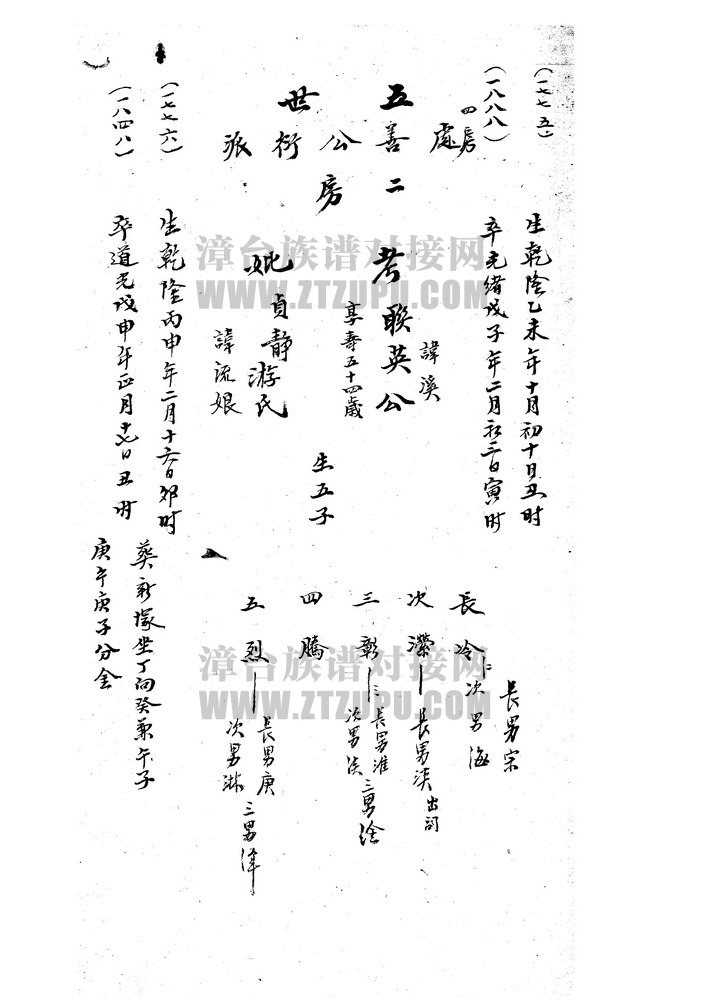 (一七七五)
生乾隆乙未年十月初十日丑时
(一八八八)
卒光緒戊子年二月初三日寅时
四房
處
五善二
世衍公房
派
諱溪
考聯英公
享寿五十四歲
妣貞静游氏
諱流娘
生五子
(一七七六)
生乾隆丙申年二月十六日卯时
(一八四八)
卒道光戊申年正月十七日丑时
葬新塚坐丁向癸兼午子
庚午庚子分金
長男宗
長冷 次男海
次濼 長男淡 出詞
三彰 長男淮
次男淡 三男淦
四騰
五烈 長男庚
次男淋 三男潭
漳台族谱对接网
WWW.ZTZUPU.COM
漳台族谱对接网
WWW.ZTZUPU.COM